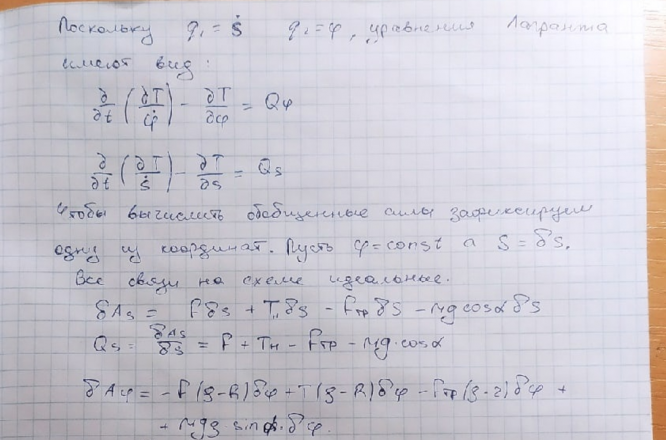 Поскольку q₁ = ṡ q₂ = φ, уравнения Лагранжа
имеют вид:
∂/∂t (∂T/φ̇) − ∂T/∂φ = Qφ
∂/∂t (∂T/ṡ) − ∂T/∂s = Qs
Чтобы вычислить обобщенные силы зафиксируем
одну из координат. Пусть φ = const а S = δS.
Все связи на схеме идеальные.
δAs = FδS + TнδS − FтрδS − Mg cosα δS
Qs = δAs/δs = F + Tн − Fтр − Mg·cosα
δAφ = −F(ρ−R)δφ + T(ρ−R)δφ − Fтр(ρ−r)δφ +
+ Mgρ·sinφ·δφ.